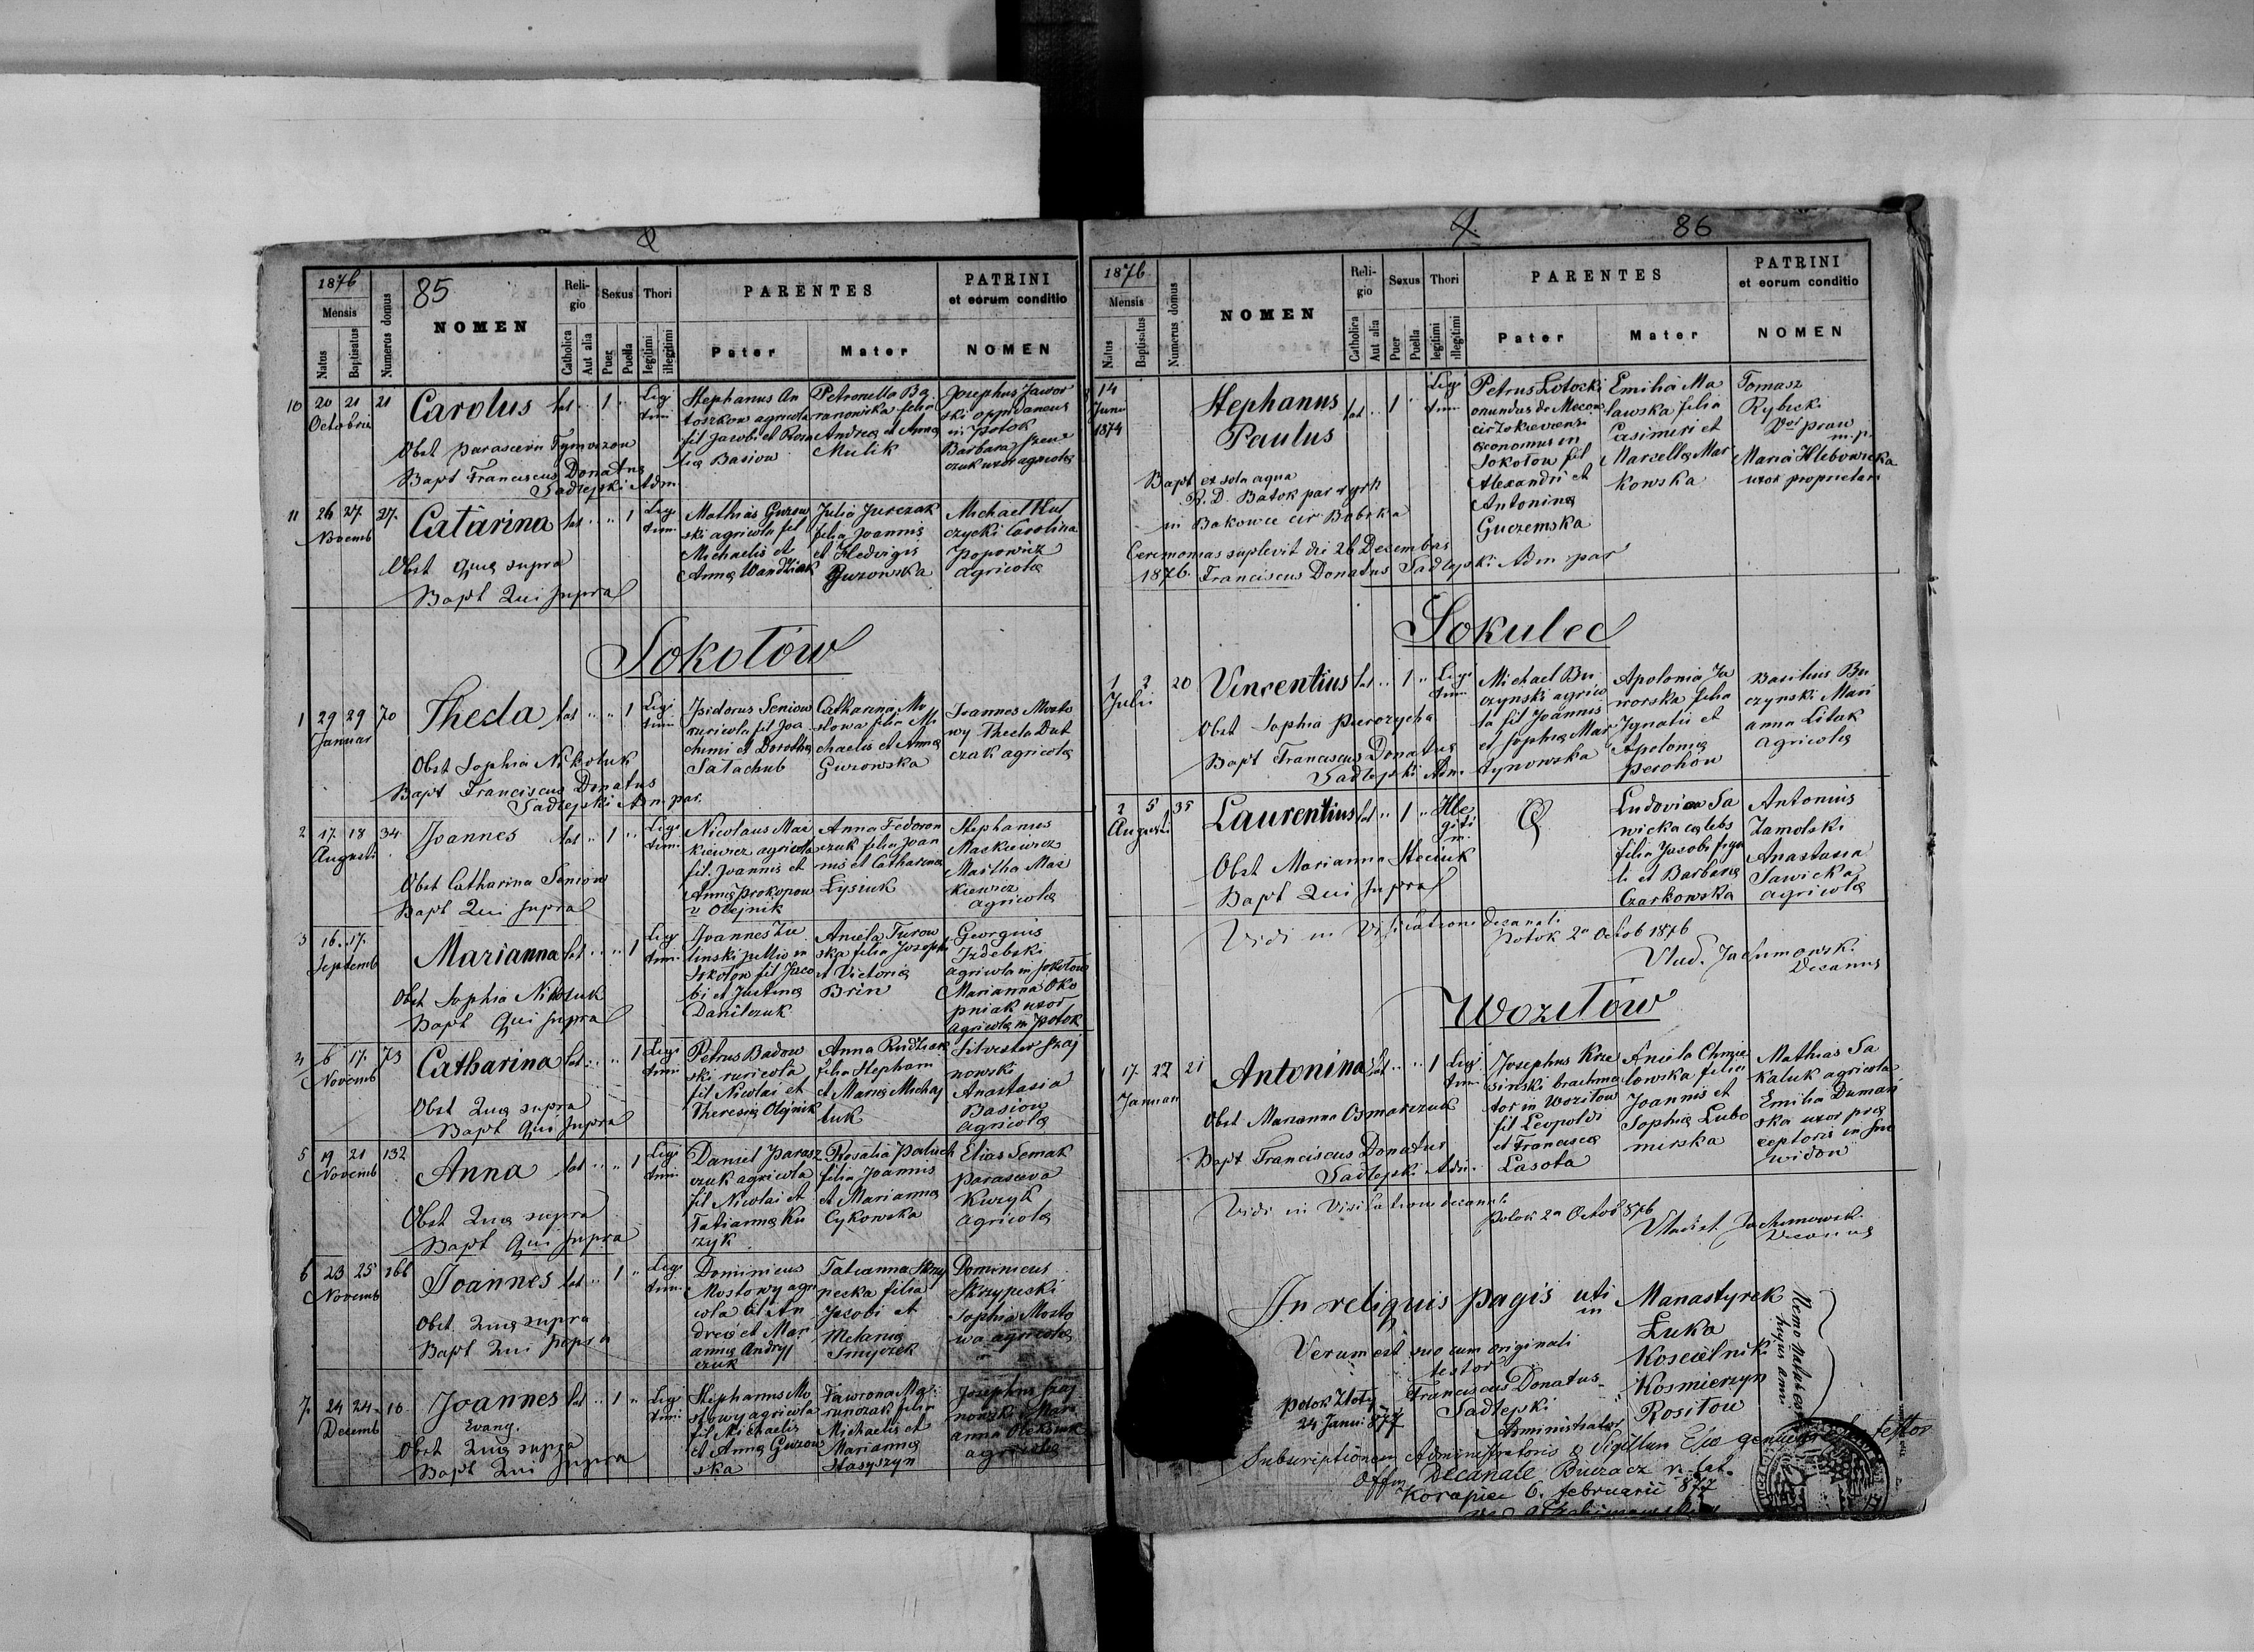 1876
85
Mensis
Natus
Baptisatus
Numerus domus
NOMEN
Reli-
gio
Catholica
Aut alia
Sexus
Puer
Puella
Thori
legitimi
illegitimi
PARENTES
Pater
Mater
PATRINI
et eorum conditio
NOMEN
10 20 21 21 Carolus lat 1 Legi
Octobris timi
Obst Parascevia Tymorzon
Bapt Franciscus Donatus
Sadlepski Adm
Stephanus An
toszkow agricola
fil Jacobi et Rosa
lia Basiow
Petronella Ba
ranowska filia
Andrea et Anna
Mulik
Josephus Jawor
ski oppidaneus
in Potok
Barbara Szew
czuk uxor agricola
11 26 27 37. Catarina lat 1 Legi
Novemb timi
Obst quæ supra
Bapt Qui supra
Mathias Guzow
ski agricola fil
Michaelis et
Anna Wandziak
Julia Jurczak
filia Joannis
et Hedvigis
Guzowska
Michael Hul
czycki Carolina
Popowicz
agricola
Sokołów
1 29 29 70 Thecla lat 1 Legi
Januar timi
Obst Sophia Nikoluk
Bapt Franciscus Donatus
Sadlepski Adm par.
Isidorus Seniow
ruricola fil Joa
chimi et Dorothea
Satachub
Catharina Mo
stowa filia Mi
chaelis et Anna
Guzowska
Joannes Mosto
wy Thecla Dut
czak agricola
2 17 18 34 Joannes lat 1 Legi
Augusti timi
Obst Catharina Seniow
Bapt Qui supra
Nicolaus Mas
kiewicz agricola
fil. Joannis et
Anna Prokopow
v Olejnik
Anna Fedoron
czuk filia Joan
nis et Catharina
Lysiuk
Stephanus
Maskiewicz
Martha Mas
kiewicz
agricola
3 16 17. Marianna lat 1 Legi
Septemb timi
Obst Sophia Nikoluk
Bapt Qui supra
Joannes Zie
linski pellio in
Sokolow fil Jaco
bi et Justina
Danilczuk
Aniela Turow
ska filia Josephi
et Victoria
Brin
Georgius
Izdebski
agricola in Sokolow
Marianna Oko
pniak uxor
agricola in Potok
4 6 17. 73 Catharina lat 1 Legi
Novemb timi
Obst Quæ supra
Bapt Qui supra
Petrus Badow
ski ruricola
fil Nicolai et
Theresia Olejnik
Anna Rudziak
filia Stephani
et Maria Michaj
luk
Silvester Szaj
nowski
Anastasia
Basiow
agricola
5 19 21 132 Anna lat 1 Legi
Novemb timi
Obst Quæ supra
Bapt Qui supra
Daniel Parasz
czuk agricola
fil Nicolai et
Tatianna Ku
rzyk
Rosalia Paluch
filia Joannis
et Marianna
Cykowska
Elias Semak
Parasceva
Kurzyk
agricola
6 23 25 166 Joannes lat 1 Legi
Novemb timi
Obst Quæ supra
Bapt Qui supra
Dominicus
Mostowy agri
cola fil An
drea et Mar
anna Andryj
czuk
Tatianna Skrzy
pecka filia
Jacobi et
Melania
Smyczek
Dominicus
Skrzypecki
Sophia Mosto
wa agricola
7. 24 24 10 Joannes lat 1 Legi
Decemb Evang. timi
Obst Quæ supra
Bapt Qui supra
Stephanus Mo
stowy agricola
fil Michaelis
et Anna Guzow
ska
Fawrona Ma
runczak filia
Michaelis et
Marianna
Stasyszyn
Josephus Szaj
nowski Mari
anna Oleksiuk
agricola
86
1876
Mensis
Natus
Baptisatus
Numerus domus
NOMEN
Reli-
gio
Catholica
Aut alia
Sexus
Puer
Puella
Thori
legitimi
illegitimi
PARENTES
Pater
Mater
PATRINI
et eorum conditio
NOMEN
14 Stephanus lat 1 Legi
Juni Paulus timi
1874
Bapt ex sola aqua
R. D. Batok par r gr h
in Bakowce cir Bobrka
Ceremonias suplevit die 26 Decembris
1876. Franciscus Donatus Sadlepski Adm par
Petrus Lotocki
oriundus de Mocow
cir Zokiewensi
œconomus in
Sokolow fil
Alexandri et
Antonina
Guczemska
Emilia Ma
lawska filia
Casimiri et
Marcella Mar
kowska
Tomasz
Rybicki
Dor praw
m.p.
Maria Hlebowicka
uxor proprietari
Sokulec
1 2 20 Vincentius lat 1 Legi
Julii timi
Obst Sophia Pierozycha
Bapt Franciscus Donatus
Sadlepski Adm.
Michael Bu
czynski agrico
la fil Joannis
et Sophia Mar
tynowska
Apolonia Ja
worska filia
Ignatii et
Apolonia
Perohow
Basilius Bu
czynski Mari
anna Litak
agricola
2 5 35 Laurentius lat 1 Ille
Augusti giti
m.
Obst Marianna Steciuk
Bapt Qui supra
Ludovica Sa
wicka cælebs
filia Jacobi figu
li et Barbara
Czarkowska
Antonius
Zamolski
Anastasia
Sawicka
agricola
Vidi in Visitatione Decanali
Potok 2a Octob 1876
Vlad. Jachimowski
Decanus
Woziłów
1 17. 27 21 Antonina lat 1 Legi
Januari timi
Obst Marianna Osmarczuk
Bapt Franciscus Donatus
Sadlepski Adm.
Josephus Krze
sinski brachma
tor in Wozilow
fil Leopoldi
et Francisca
Lasota
Aniela Chmie
lowska filia
Joannis et
Sophia Lubo
mirska
Mathias Sa
kaluk agricola
Emilia Dumań
ska uxor præ
ceptoris in Sno
widow
Vidi in Visitatione decanali
Potok 2a Octob 876
Vladisl. Jachimowski
Decanus
In reliquis pagis uti in Manastyrek
Luka
Koscielniki
Kosmierzyn
Rositow
Nemo natus est
hujus anni
Verum est suo cum originali
testor
Franciscus Donatus
Sadlepski
Administrator
Potok Zloty
24 Januari 877
Subscriptionem Administratoris & Sigillum Eccl genuinum esse testor
Offm Decanale Buczacz r. lat.
Koropiec 6. februarii 877